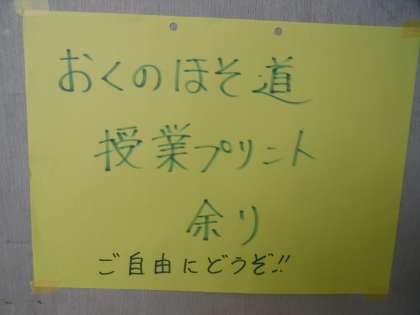 おくのほそ道
授業プリント
余り
ご自由にどうぞ!!